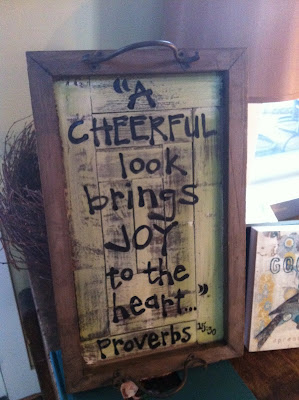 "A
CHEERFUL
look
brings
JOY
to the
heart..."
Proverbs 15:30